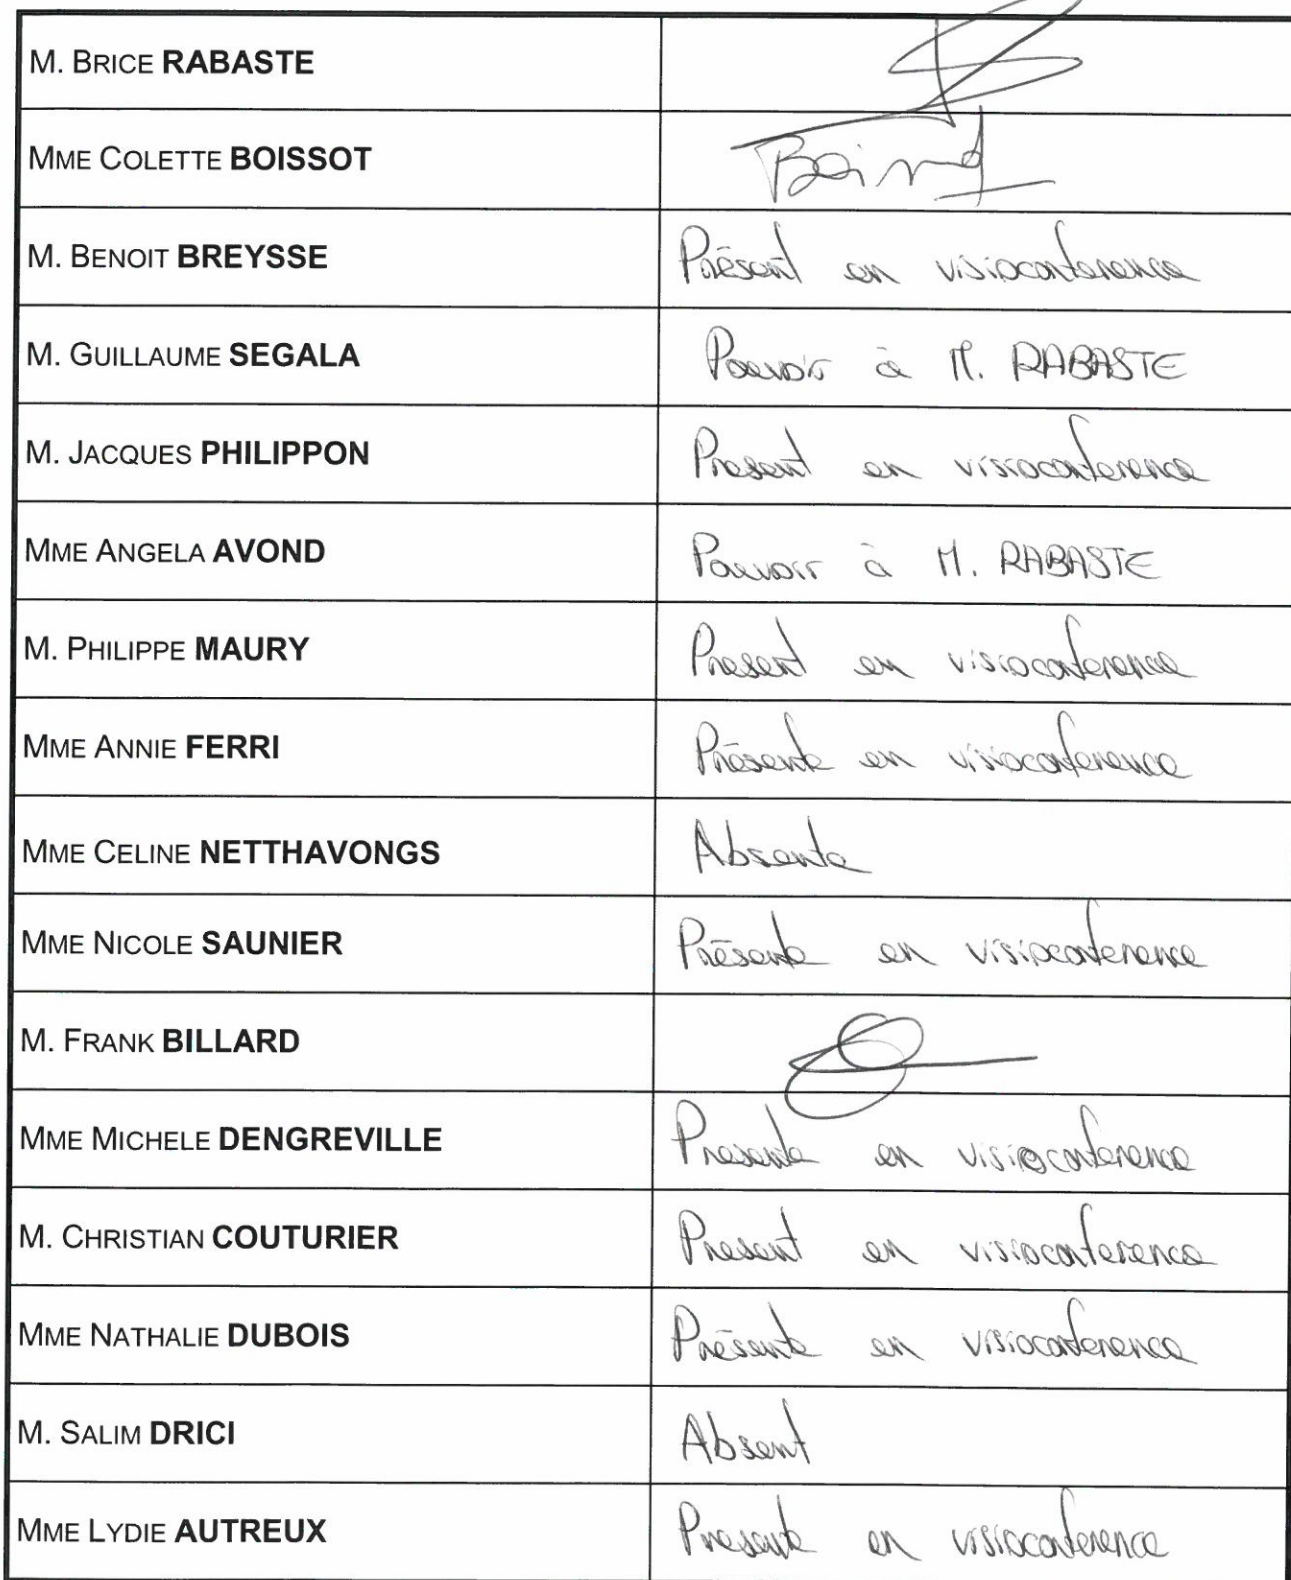 M. BRICE RABASTE
MME COLETTE BOISSOT
M. BENOIT BREYSSE Présent en visioconference
M. GUILLAUME SEGALA Pouvoir à M. RABASTE
M. JACQUES PHILIPPON Present en visioconference
MME ANGELA AVOND Pouvoir à M. RABASTE
M. PHILIPPE MAURY Present en visioconference
MME ANNIE FERRI Présente en visioconference
MME CELINE NETTHAVONGS Absente
MME NICOLE SAUNIER Présente en visioconference
M. FRANK BILLARD
MME MICHELE DENGREVILLE Presente en visioconference
M. CHRISTIAN COUTURIER Present en visioconference
MME NATHALIE DUBOIS Présente en visioconference
M. SALIM DRICI Absent
MME LYDIE AUTREUX Presente en visioconference